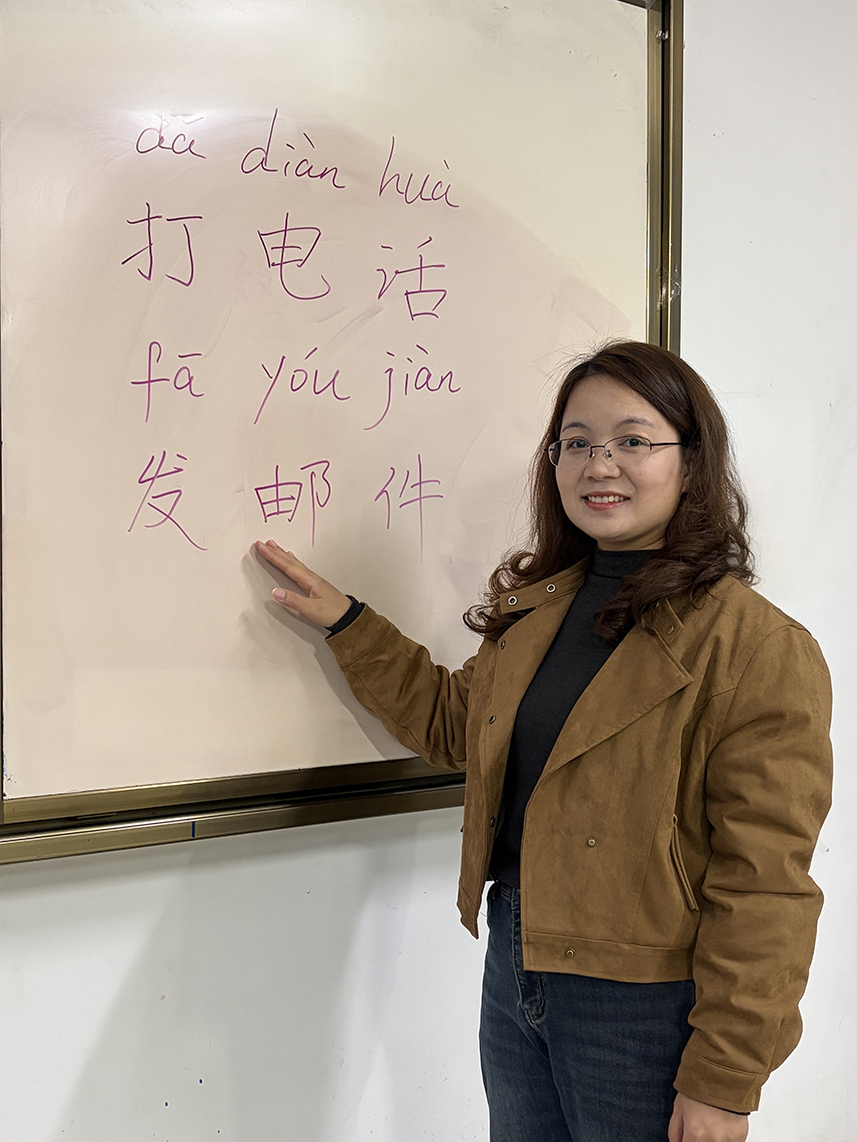 dǎ diàn huà
打电话
fā yóu jiàn
发邮件